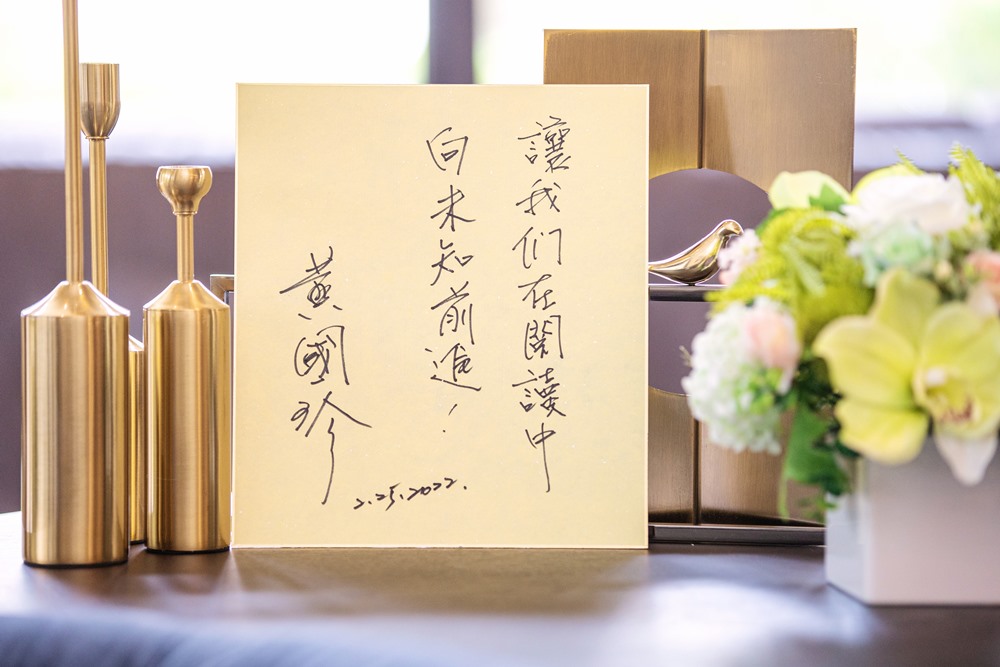 讓我们在閱讀中
向未知前進！
黃國珍
2.25.2022.